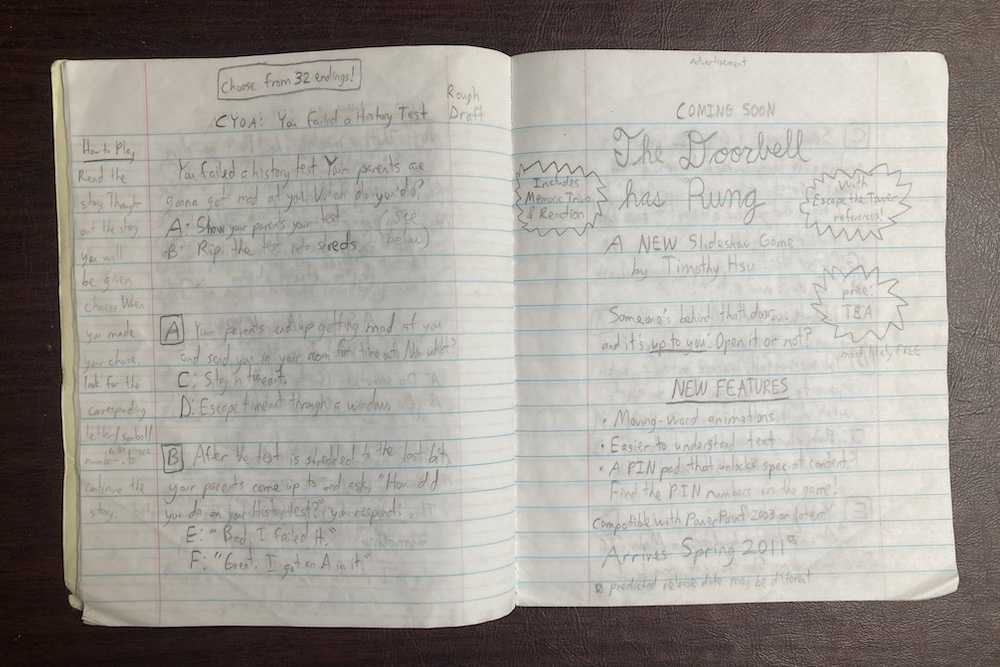 Choose from 32 endings!
Rough
Draft
CYOA: You Failed a History Test
How to Play
Read the
story. Though
out the story
you will
be given
choices. When
you made
your choice,
look for the
corresponding
letter/symbol/
number, to
continue the
story.
You failed a history test. Your parents are
gonna get mad at you. What do you do?
A: Show your parents your test
B: Rip the test into shreds
(see
below)
A Your parents end up getting mad at you
and send you in your room for time out. Now what?
C: Stay in timeout
D: Escape timeout through a window
B After the test is shredded to the last bit,
your parents come up to and asks, "How did
you do on your History test?" you respond:
E: "Bad. I failed it."
F: "Great. I got an A in it."
Advertisement
COMING SOON
The Doorbell
has Rung
Includes
Memory
& Reaction
With
Escape the Tower
references!
A NEW Slideshow Game
by Timothy Hsu
price:
TBA
most likely FREE
Someone's behind that door...
and it's up to you. Open it or not?
NEW FEATURES
• Moving-word animations
• Easier to understand text
• A PIN pad that unlocks special content!
Find the PIN numbers in the game!
Compatible with PowerPoint 2003 or later
Arrives Spring 2011
predicted release date may be diferent